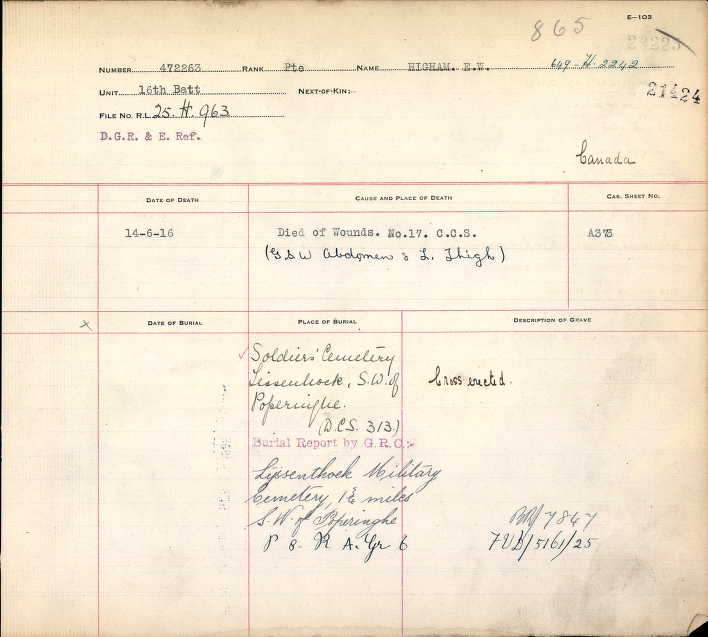 E—103
865
22225
NUMBER 472263 RANK Pte NAME HIGHAM. E.W. 649-H-2242
UNIT 16th Batt NEXT-OF-KIN:-
21424
FILE NO. R.L. 25. H. 963
D.G.R. & E. Ref.
Canada
DATE OF DEATH CAUSE AND PLACE OF DEATH CAS. SHEET NO.
14-6-16 Died of Wounds. No.17. C.C.S. A373
(G.S.W Abdomen & L. Thigh)
x DATE OF BURIAL PLACE OF BURIAL DESCRIPTION OF GRAVE
Soldiers' Cemetery
Lissenhock, S.W. of
Cross erected.
Poperinghe.
(D.C.S. 313.)
Burial Report by G.R.C:-
Lijssenthoek Military
Cemetery, 1¾ miles
S.W. of Poperinghe
BR/7847
P 8. R A. Gr 6
7UD/5161/25